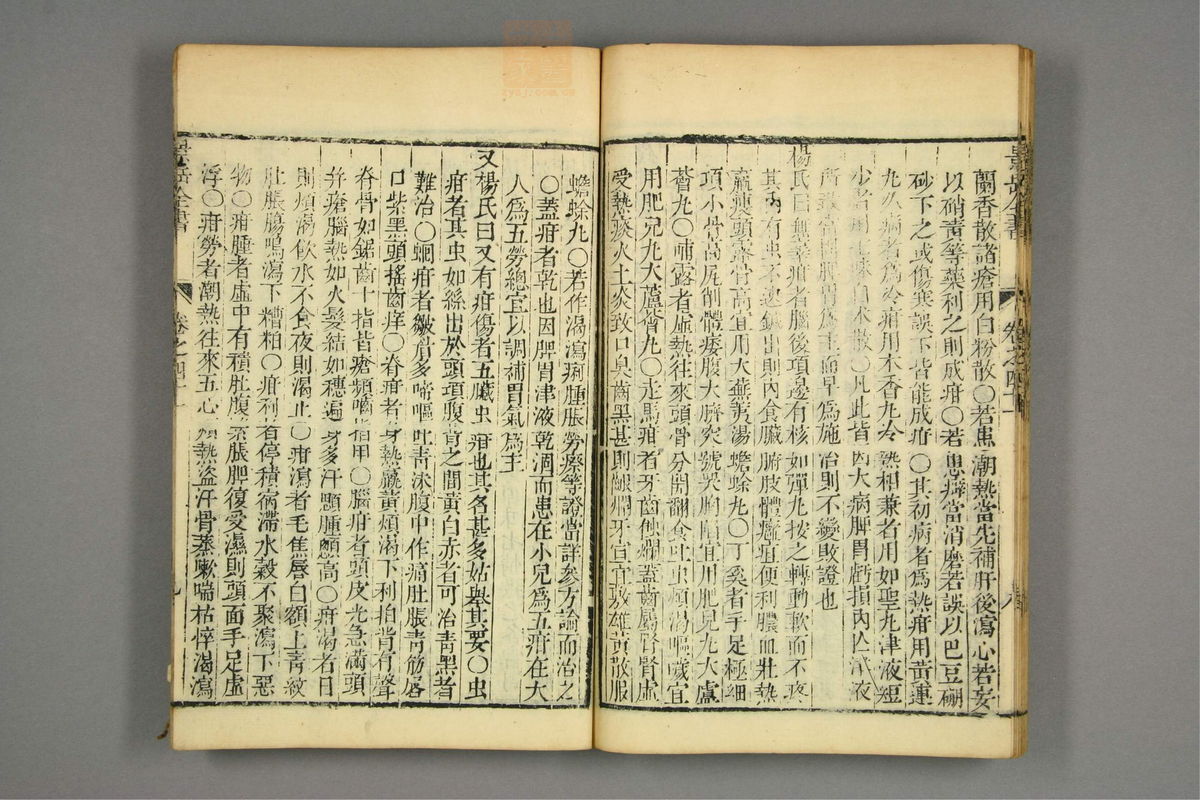 景岳全書
卷之四十一
蘭香散諸瘡用白粉散〇若患潮熱當先補肝後瀉心若妄
以硝黃等藥利之則成疳〇若患癖當消磨若誤以巴豆硼
砂下之或傷寒誤下皆能成疳〇其初病者為熱疳用黃連
丸久病者為冷疳用木香丸冷熱相兼者用如聖丸津液短
少者用 白朮散〇凡此皆因大病脾胃虧損內亡津液
所 脾胃為主而早為施治則不變敗證也
楊氏曰無辜疳者腦後項邊有核如彈丸按之轉動軟而不疼
其內有虫不速針出則內食臟腑肢體癰疽便利膿血壯熱
羸瘦頭露骨高宜用大蕪荑湯蟾蜍丸〇丁奚者手足極細
項小骨高尻削體痿腹大臍突號哭胸陷宜用肥兒丸大蘆
薈丸〇哺露者虛熱往來頭骨分開翻食吐虫煩渴嘔噦宜
用肥兒丸大蘆薈丸〇走馬疳者牙齒蝕爛蓋齒屬腎腎虛
受熱疾火上炎致口臭齒黑甚則齦爛牙宣宜敷雄黃散服
蟾蜍丸〇若作渴瀉痢腫脹勞瘵等證當詳參方論而治之
〇蓋疳者乾也因脾胃津液乾涸而患在小兒為五疳在大
人為五勞總宜以調補胃氣為主
又楊氏曰又有疳傷者五臟虫疳也其名甚多姑舉其要〇虫
疳者其虫如絲出於頭項腹背之間黃白赤者可治青黑者
難治〇蛔疳者皺眉多啼嘔吐青沫腹中作痛肚脹青筋唇
口紫黑頭搖齒痒〇脊疳者身熱羸黃煩渴下利拍背有聲
脊骨如鋸齒十指皆瘡頻嚙指甲〇腦疳者頭皮光急滿頭
並瘡腦熱如火髮結如穗遍身多汗顋腫顖高〇疳渴者日
則煩渴飲水不食夜則渴止〇疳瀉者毛焦唇白額上青紋
肚脹腸鳴瀉下糟粕〇疳利者停積宿滯水穀不聚瀉下惡
物〇疳腫者虛中有積肚腹緊脹脾復受濕則頭面手足虛
浮〇疳勞者潮熱往來五心煩熱盜汗骨蒸嗽喘枯悴渴瀉
景岳全書
卷之四十一
九